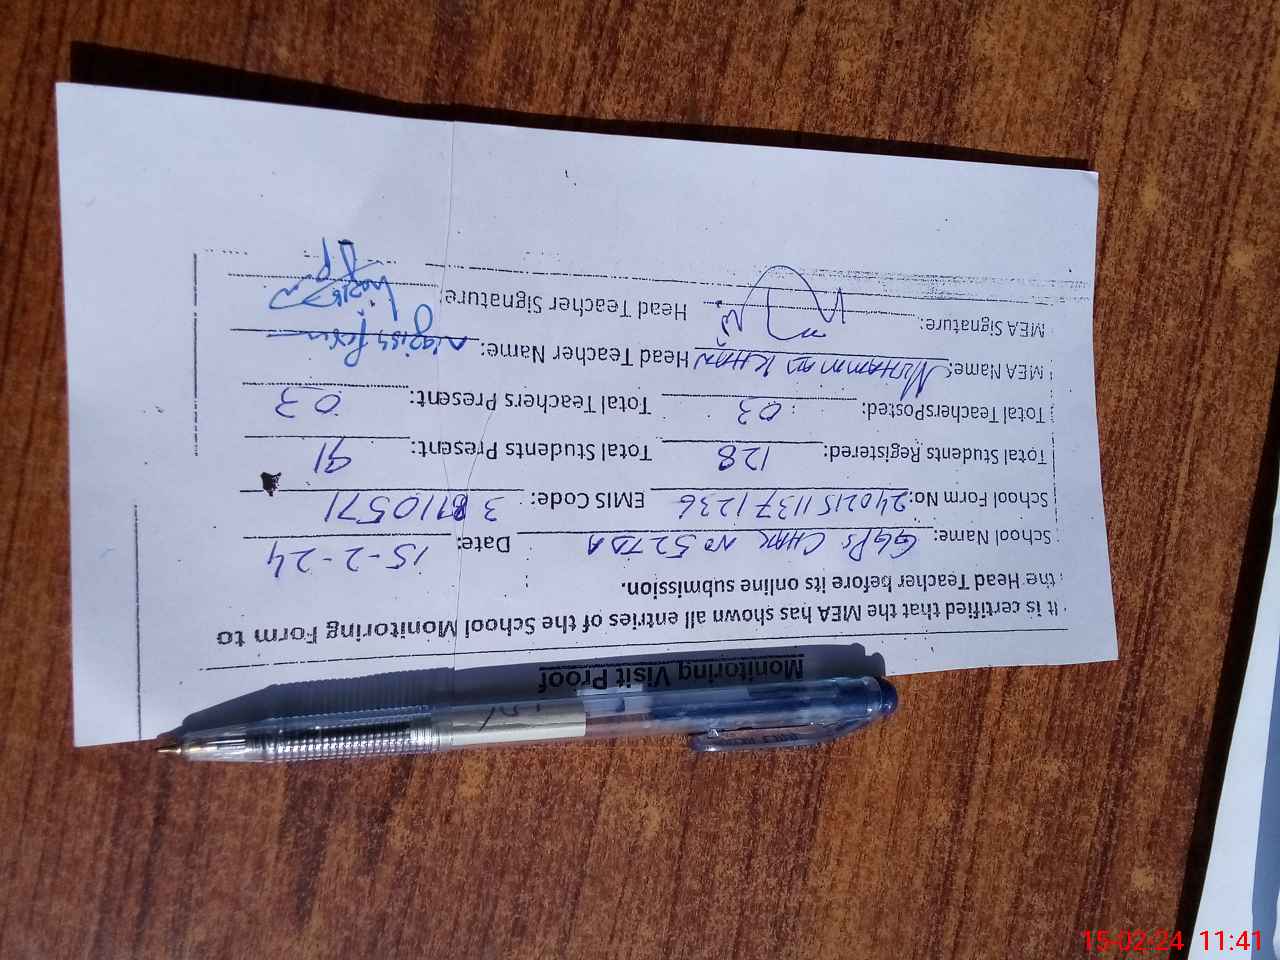 Monitoring Visit Proof
It is certified that the MEA has shown all entries of the School Monitoring Form to
the Head Teacher before its online submission.
School Name: GGPS CHAK NO 527DA Date: 15-2-24
School Form No: 24021511371236 EMIS Code: 38110571
Total Students Registered: 128 Total Students Present: 91
Total TeachersPosted: 03 Total Teachers Present: 03
MEA Name: MUHAMMAD KHAN Head Teacher Name:
MEA Signature: Head Teacher Signature:
15-02-24 11:41